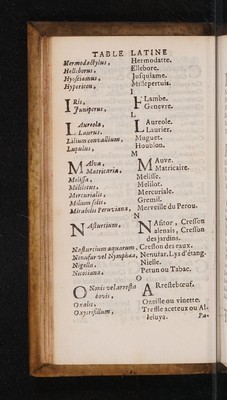 TABLE LATINE
Hermodactylus, Hermodatte.
Helleborus, Ellebore.
Hyosciamus, Jusquiame.
Hypericon, Millepertuis.
I
IRis, Flambe.
Juniperus, Genevre.
L
LAureola, Laureole.
Laurus. Laurier.
Lilium convallium, Muguet.
Lupulus, Houblon.
M
MAlva, Mauve.
Matricaria, Matricaire.
Melissa, Melisse.
Melilotus, Melilot.
Mercurialis, Mercuriale.
Milium solis, Gremil.
Mirabilis Peruviana, Merveille du Perou.
N
NAsturtium, NAsitor, Cresson
alenais, Cresson
des jardins.
Nasturtium aquarum, Cresson des eaux.
Nenufar vel Nymphæa, Nenufar. Lys d'étang.
Nigella, Nielle.
Nicotiana, Petun ou Tabac.
O
ONonis vel arresta ARrestebœuf.
bovis,
Oxalis, Ozeille ou vinette.
Oxytrifillum, Treffle aceteux ou Al-
leluya.
Pa-